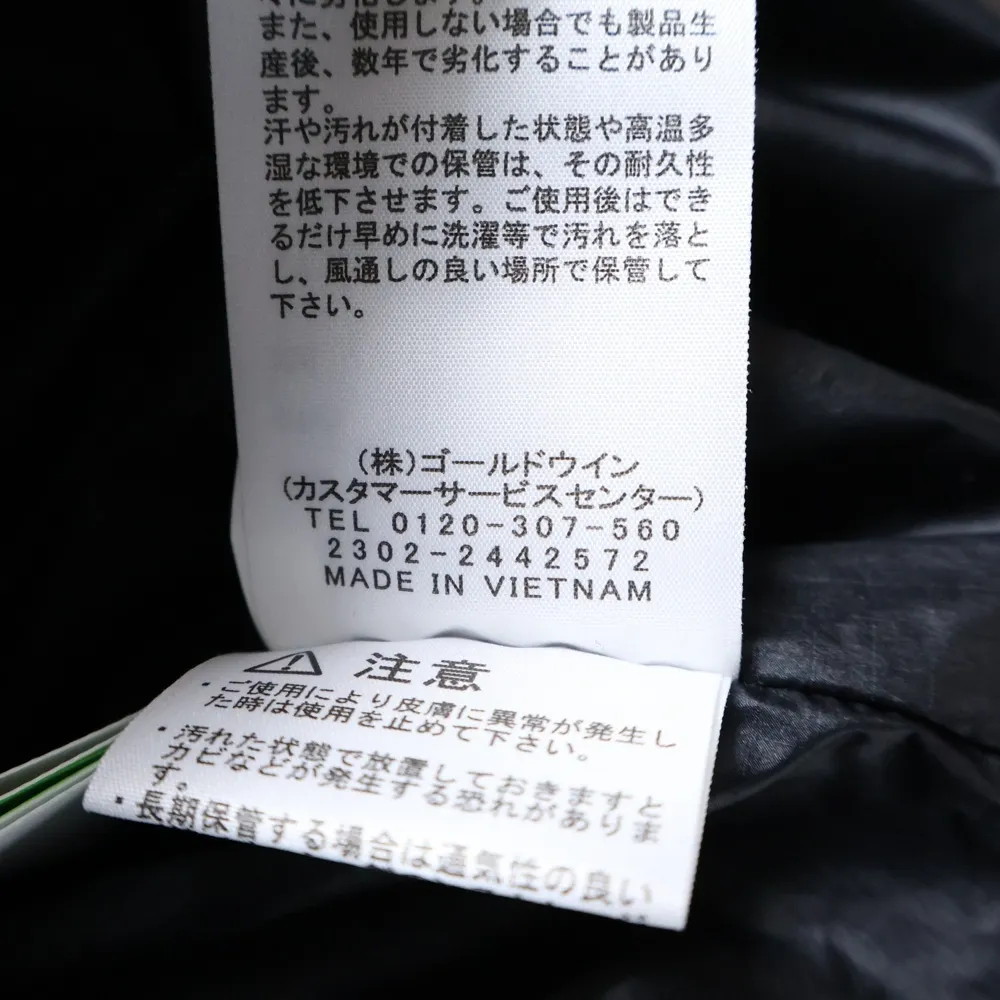 に劣化します。
また、使用しない場合でも製品生
産後、数年で劣化することがあり
ます。
汗や汚れが付着した状態や高温多
湿な環境での保管は、その耐久性
を低下させます。ご使用後はでき
るだけ早めに洗濯等で汚れを落と
し、風通しの良い場所で保管して
下さい。
(株)ゴールドウイン
(カスタマーサービスセンター)
TEL 0120-307-560
2302-2442572
MADE IN VIETNAM
注意
・ご使用により皮膚に異常が発生し
た時は使用を止めて下さい。
・汚れた状態で放置しておきますと
カビなどが発生する恐れがありま
す。
・長期保管する場合は通気性の良い